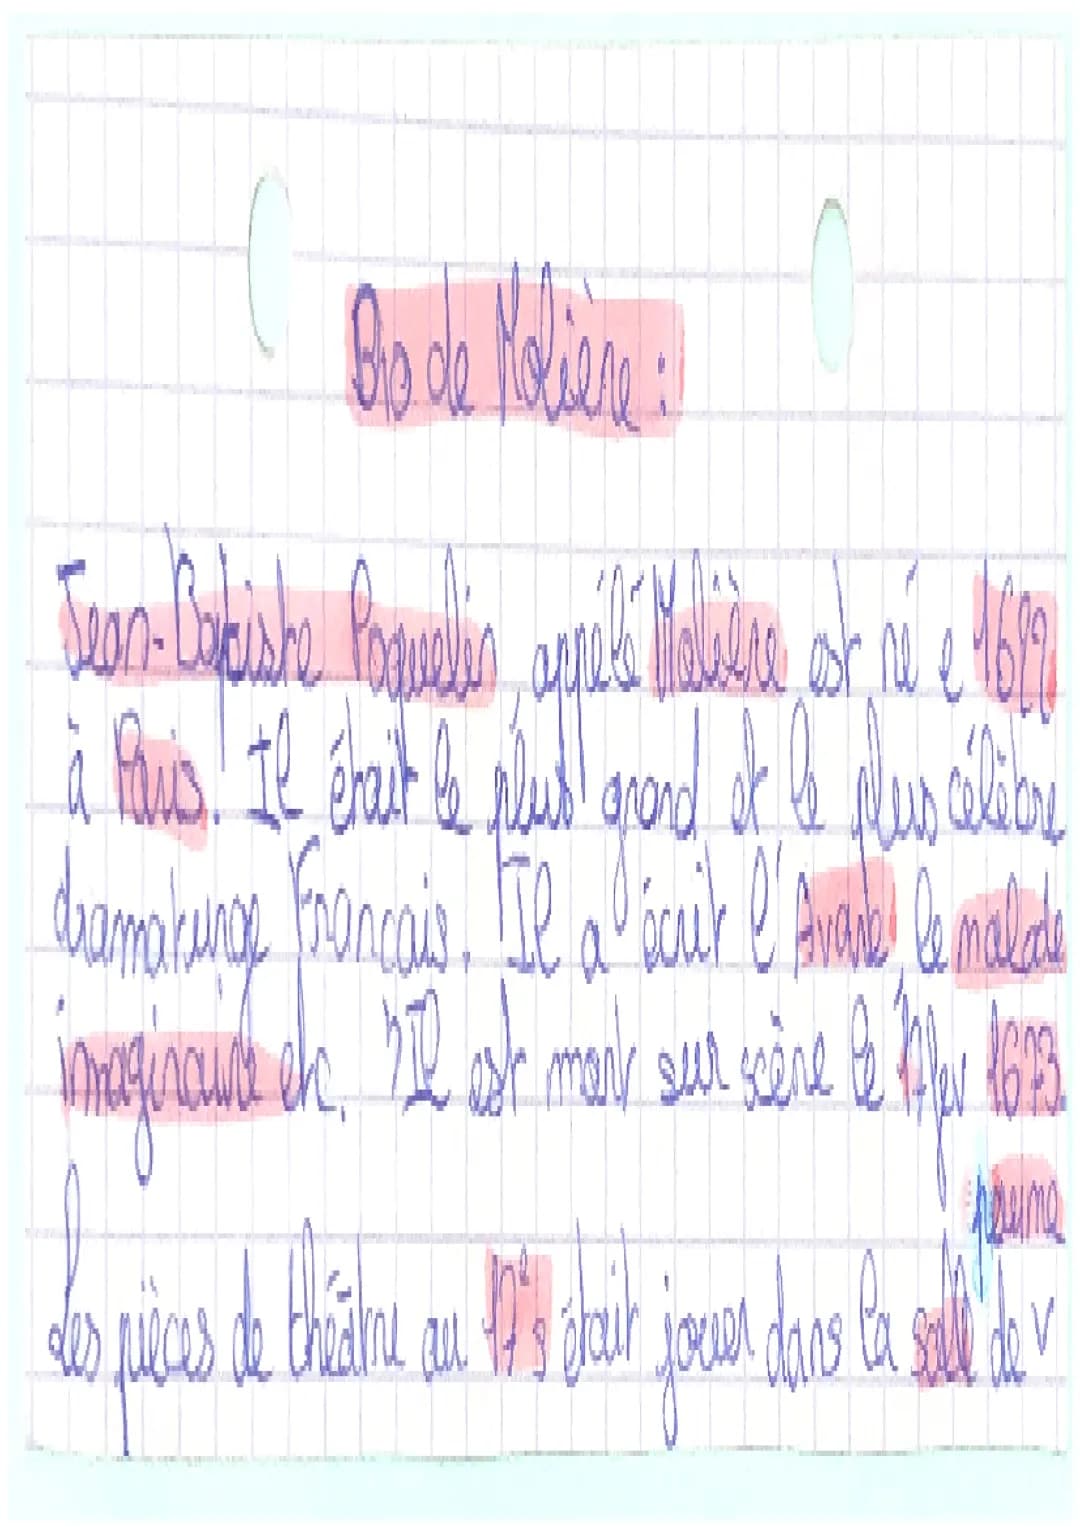 Bio de Molière :
Jean-Baptiste Poquelin appelé Molière est né e 1622
à Paris. Il était le plus grand et le plus célèbre
dramaturge Francais. Il a écrit l'Avare le malade
imaginaire etc. Il est mort sur scène le 17 fev 1673.
paume
Les pièces de théâtre au 17e s était jouer dans la salle de v